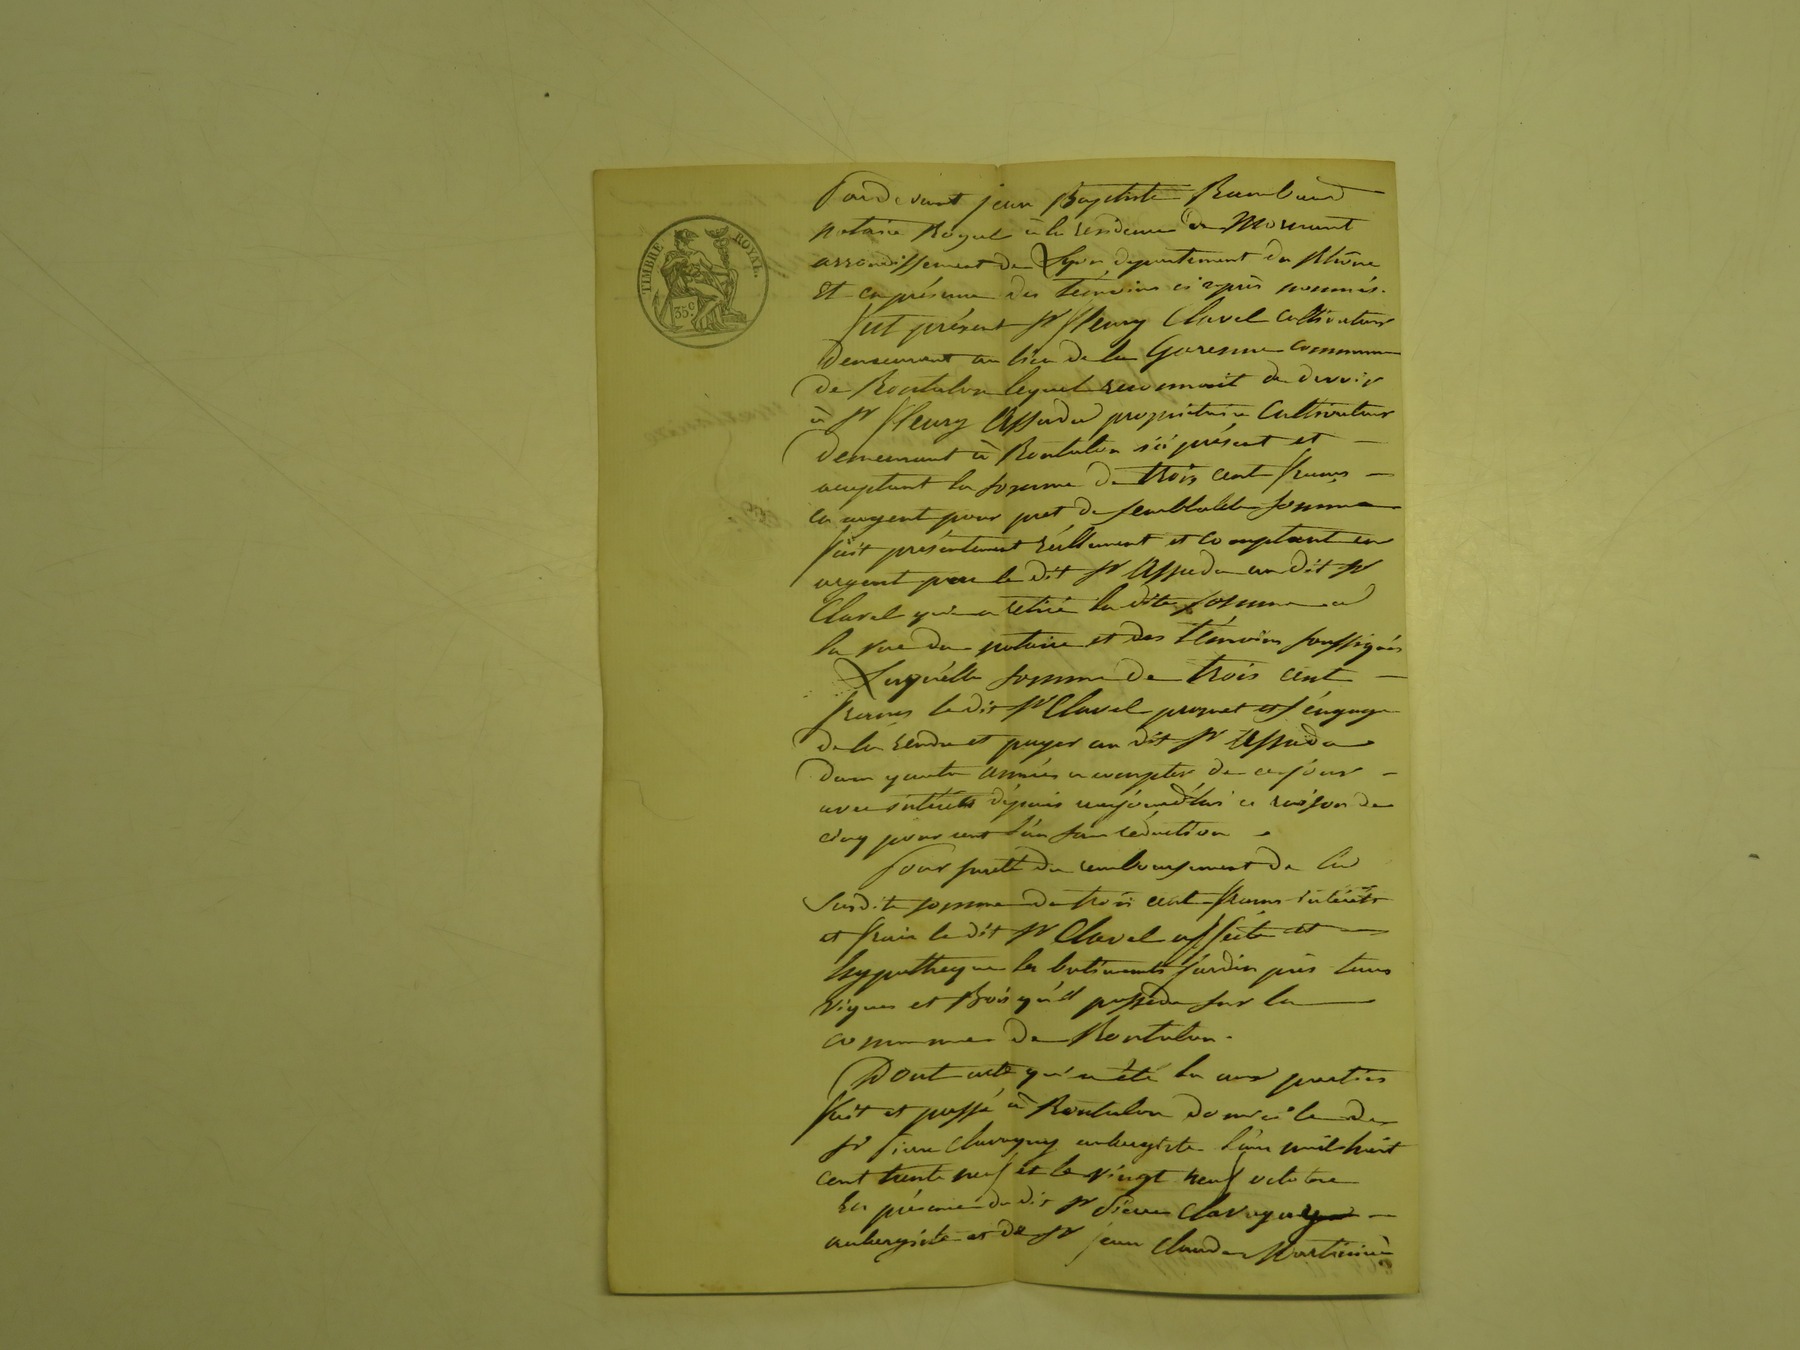 TIMBRE ROYAL.
35c
Pardevant jean Baptiste Rambaud
notaire Royal à la residence de Mornant
arrondissement de Lyon departement du Rhône
Et en présence des témoins ci après nommés.
fut présent Sr fleury Clavel cultivateur
demeurant au lieu de la Garenne commune
de Rontalon lequel reconnait de devoir
à Sr fleury Assada propriétaire Cultivateur
demeurant à Rontalon ici présent et
acceptant la somme de trois cent francs
en argent pour pret de semblable somme
fait présentement réellement et comptant en
argent par le dit Sr Assada au dit Sr
Clavel qui a retiré la dite somme a
la vue du notaire et des témoins soussignés
Laquelle somme de trois cent
francs le dit Sr Clavel promet et s'engage
de la rendre et payer au dit Sr Assada
dans quatre années a compter de ce jour
avec intérêts depuis aujourd'hui a raison de
cinq pour cent l'an sans réduction
Pour sureté du remboursement de la
susdite somme de trois cent francs intérêts
et frais le dit Sr Clavel affecte et
hypotheque les batiments jardin prés terres
vignes et Bois qu'il possede sur la
commune de Rontalon.
Dont acte qui a été lu aux parties
fait et passé à Rontalon domicile de
Sr Pierre Chavagny aubergiste l'an mil huit
cent trente neuf et le vingt neuf octobre
En présence du dit Sr Pierre
aubergiste et de Sr jean Claude